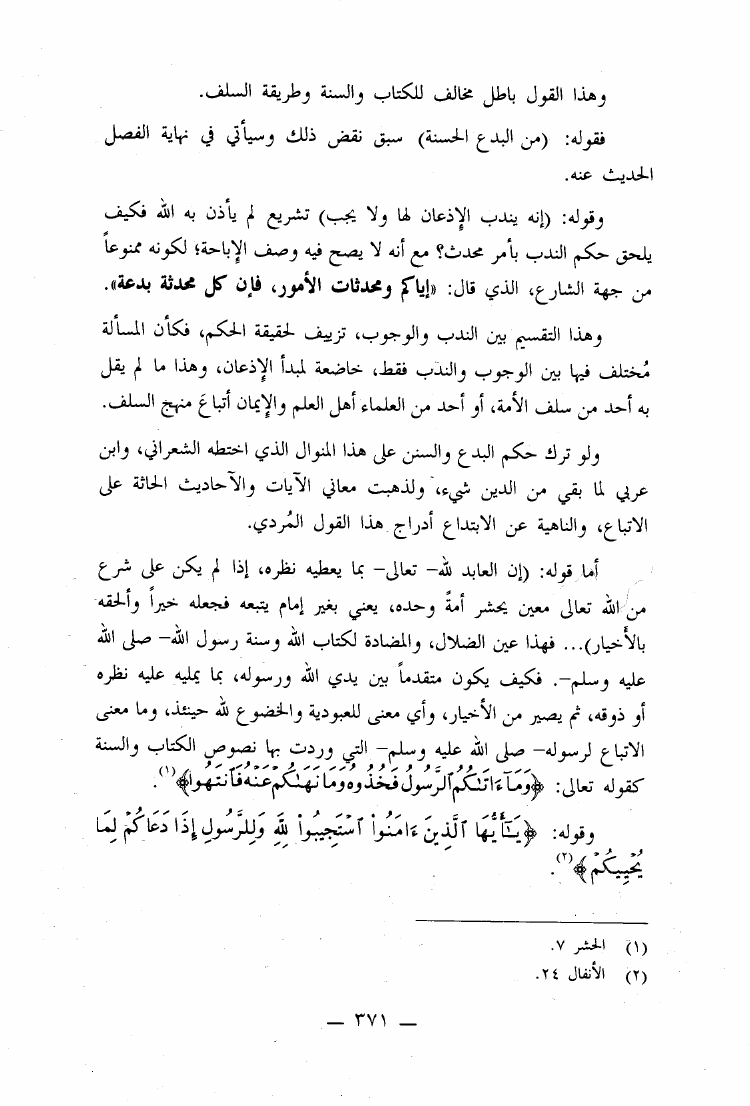 وهذا القول باطل مخالف للكتاب والسنة وطريقة السلف.
فقوله: (من البدع الحسنة) سبق نقض ذلك وسيأتي في نهاية الفصل
الحديث عنه.
وقوله: (إنه يندب الإذعان لها ولا يجب) تشريع لم يأذن به الله فكيف
يلحق حكم الندب بأمر محدث؟ مع أنه لا يصح فيه وصف الإباحة؛ لكونه ممنوعاً
من جهة الشارع، الذي قال: «إياكم ومحدثات الأمور، فإن كل محدثة بدعة».
وهذا التقسيم بين الندب والوجوب، تزييف لحقيقة الحكم، فكأن المسألة
مُختلف فيها بين الوجوب والندب فقط، خاضعة لمبدأ الإذعان، وهذا ما لم يقل
به أحد من سلف الأمة، أو أحد من العلماء أهل العلم والإيمان أتباعَ منهج السلف.
ولو ترك حكم البدع والسنن على هذا المنوال الذي اختطه الشعراني، وابن
عربي لما بقي من الدين شيء، ولذهبت معاني الآيات والأحاديث الحاثة على
الاتباع، والناهية عن الابتداع أدراج هذا القول المُردي.
أما قوله: (إن العابد لله- تعالى- بما يعطيه نظره، إذا لم يكن على شرع
من الله تعالى معين يحشر أمةً وحده، يعني بغير إمام يتبعه فجعله خيراً وألحقه
بالأخيار)... فهذا عين الضلال، والمضادة لكتاب الله وسنة رسول الله- صلى الله
عليه وسلم-. فكيف يكون متقدماً بين يدي الله ورسوله، بما يمليه عليه نظره
أو ذوقه، ثم يصير من الأخيار، وأي معنى للعبودية والخضوع لله حينئذ، وما معنى
الاتباع لرسوله- صلى الله عليه وسلم- التي وردت بها نصوص الكتاب والسنة
كقوله تعالى: ﴿وَمَآ ءَاتَىٰكُمُ ٱلرَّسُولُ فَخُذُوهُ وَمَا نَهَىٰكُمْ عَنْهُ فَٱنتَهُوا۟﴾(١).
وقوله: ﴿يَـٰٓأَيُّهَا ٱلَّذِينَ ءَامَنُوا۟ ٱسْتَجِيبُوا۟ لِلَّهِ وَلِلرَّسُولِ إِذَا دَعَاكُمْ لِمَا
يُحْيِيكُمْ﴾(٢).
(١) الحشر ٧.
(٢) الأنفال ٢٤.
— ٣٧١ —